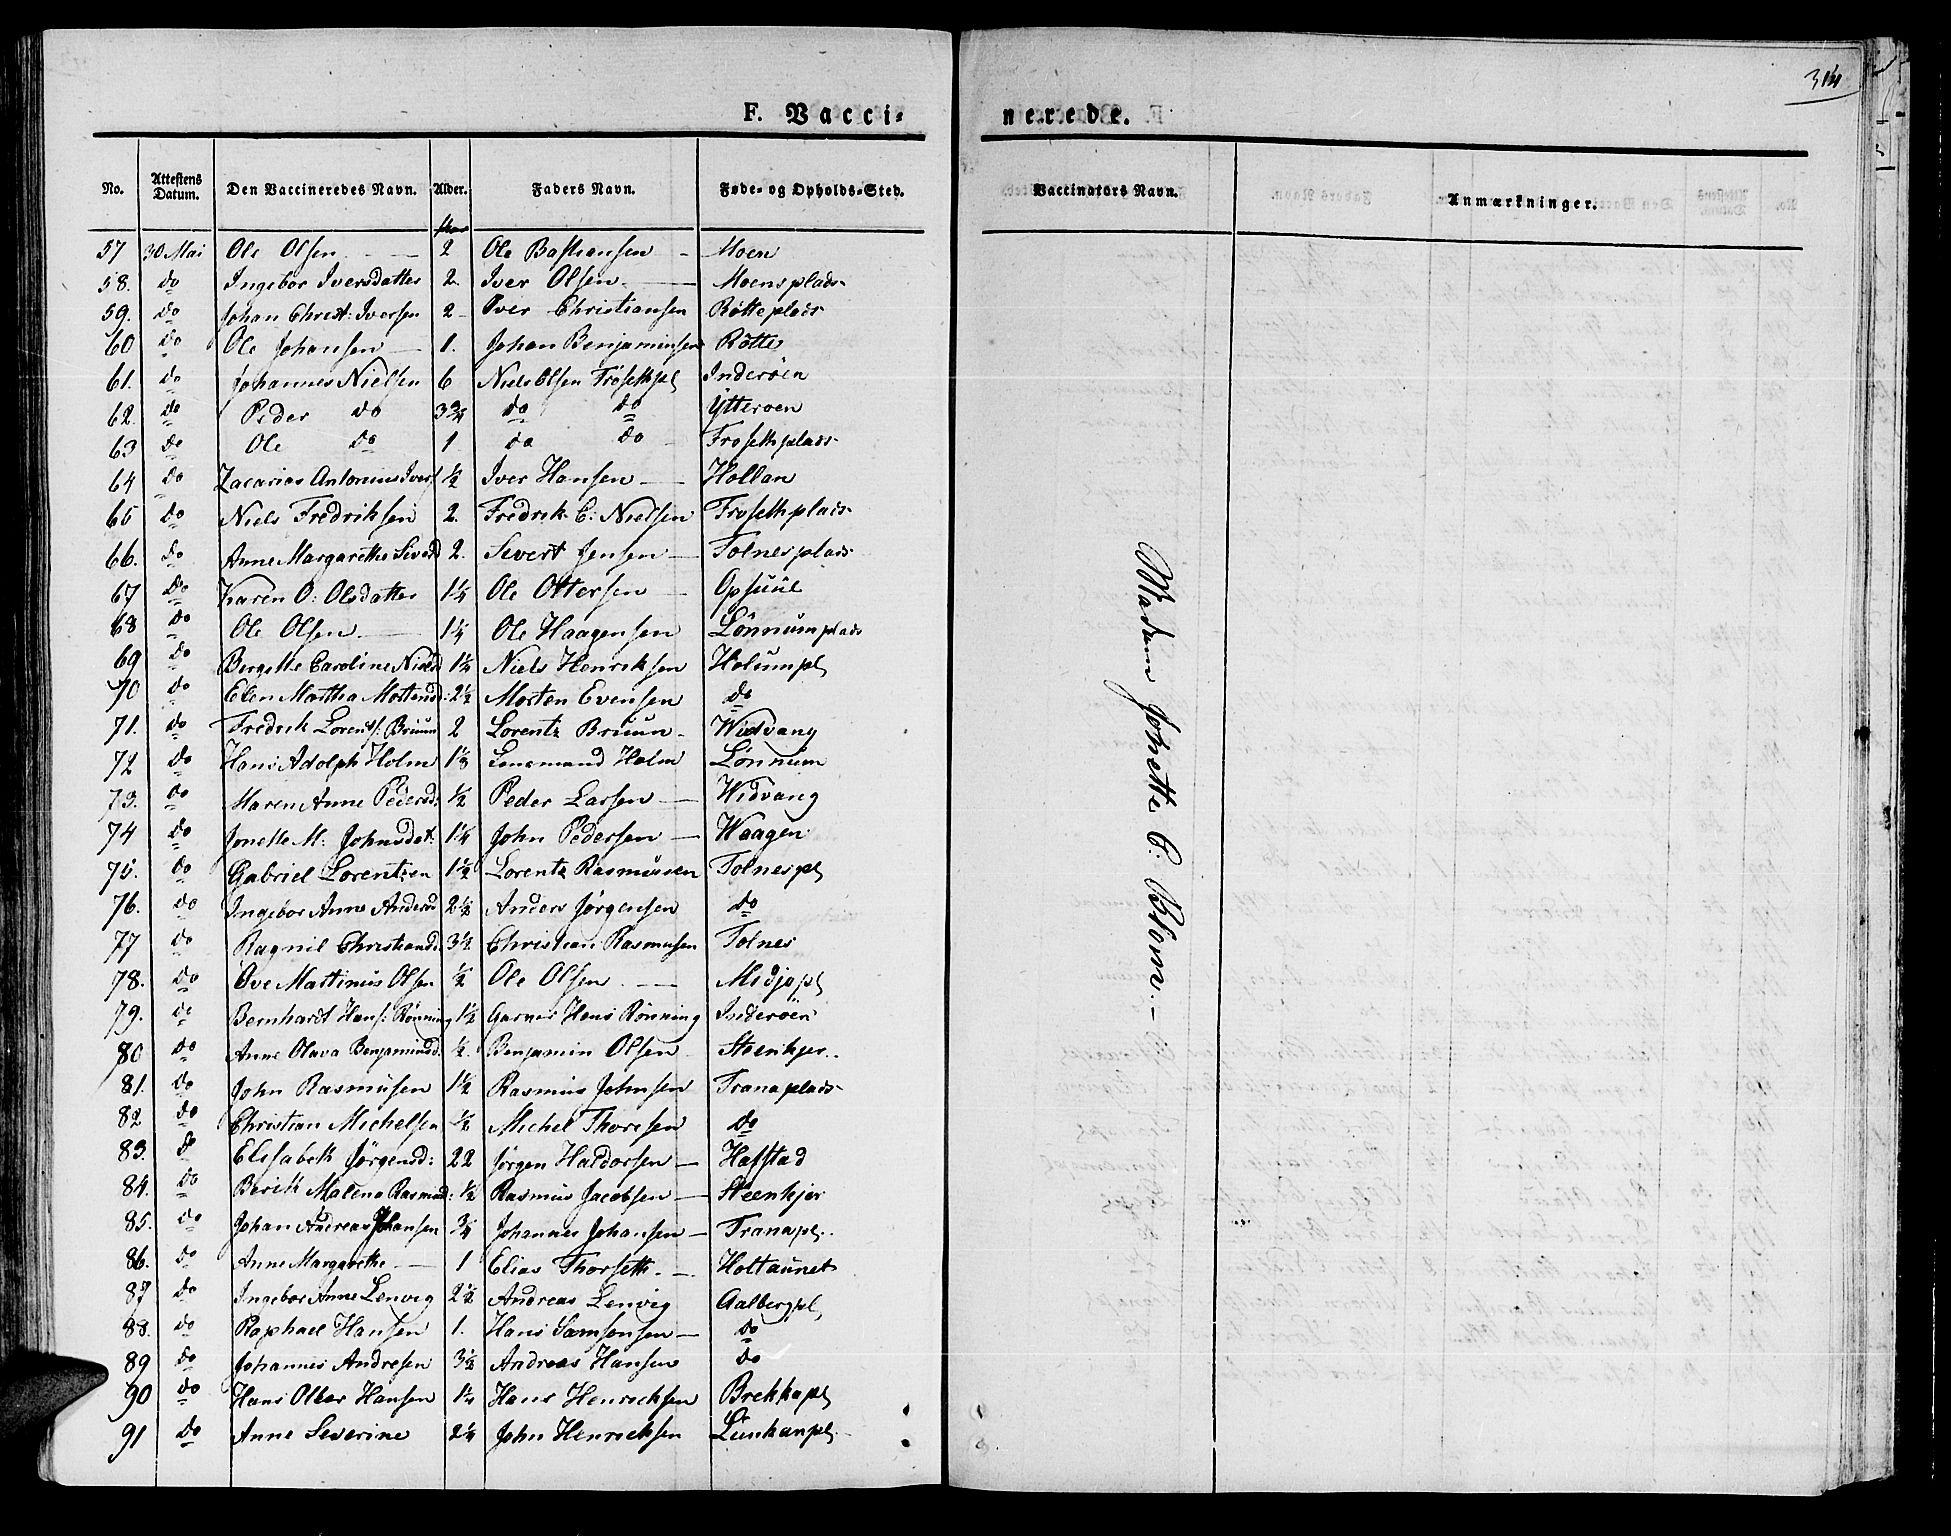 314
F. Vacci-
nerede.
No. Attestens Datum. Den Vaccineredes Navn. Alder. Faders Navn. Føde- og Opholds-Sted. Vaccinators Navn. Anmærkninger.
57 30 Mai Ole Olsen 2 Ole Bastiansen Moen
58. do Ingebor Iversdatter 2. Iver Olsen Moensplads
59. do Johan Christ: Iversen 2 Iver Christiansen Rotteplads
60 do Ole Johansen 1. Johan Benjaminsen Rotte
61. do Johannes Nielsen 6 Niels Olsen Frosethpl Inderöen
62. do Peder do 3¾ do do Ytteroen
63 do Ole do 1 do do Frosethplads
64 do Zacarias Antonius Ivers 1/2 Iver Hansen Hollan
65 do Niels Fredriksen 2. Fredrik C: Nielsen Frosethplads
66. do Anne Margarethe Sivertd 2. Sivert Jensen Tolnesplads
67 do Karen O: Olsdatter 1¼ Ole Ottersen Opsuul
68 do Ole Olsen 1¼ Ole Haagensen Lönnumplads
69 do Bergitte Caroline Nielsd 1¼ Niels Henriksen Holumpl
70 do Elen Martha Mortensd: 2½ Morten Evensen do
71. do Fredrik Lorents: Bruun 2 Lorentz Bruun Widvang
72 do Hans Adolph Holm 1⅓ Lensmand Holm Lönnum
73. do Maren Anne Pedersd: 1/2 Peder Larsen Widvang
74 do Jonette M: Johnsdat: 1¼ John Pedersen Waagen
75. do Gabriel Lorentzen 1½ Lorentz Rasmussen Tolnespl
76. do Ingebor Anne Andersd 2½ Anders Jørgensen do
77 do Ragnil Christiansd: 3½ Christian Rasmusen Tolnes
78. do Ove Martinus Olsen 1/2 Ole Olsen Midjopl
79. do Bernhardt Hans: Rönning 1½ Garver Hans Rönning Inderöen
80 do Anne Olava Benjaminsd. 1/2. Benjamin Olsen Steenkjer
81. do John Rasmusen 1½ Rasmus Johnsen Tranaplads
82 do Christian Michelsen 1/2 Michel Thoresen do
83. do Elisabeth Jørgensd: 22 Jørgen Haldorsen Hafstad
84. do Berith Malena Rasmusd: 1/2 Rasmus Jacobsen Steenkjer
85. do Johan Andreas Johansen ¾ Johannes Johansen Tranapl.
86. do Anne Margarethe 1 Elias Thorseth Holtaunet
87 do Ingebor Anne Lenvig 2½ Andreas Lenvig Aalbergpl
88. do Raphael Hansen 1. Hans Samsonsen do
89 do Johannes Andresen 3½ Andreas Hansen do
90 do Hans Olver Hansen 1¼ Hans Henricksen Brekkapl
91 do Anne Severine 2¼ John Henricksen Lunhanpl
Madam Jonette C: Blom.